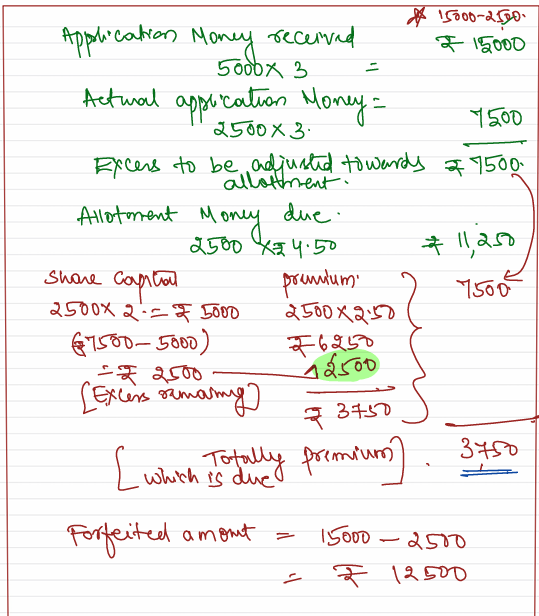 * 15000-2500.
Application Money received ₹ 15000
5000 x 3 =
Actual application Money =
2500 x 3. 7500
Excess to be adjusted towards ₹ 7500.
allotment.
Allotment Money due.
2500 x ₹ 4.50 ₹ 11,250
Share Capital premium. 7500.
2500 x 2. = ₹ 5000 2500 x 2.50
(₹7500 - 5000) ₹ 6250
= ₹ 2500 2500
[Excess remaining] ₹ 3750
[Totally premium]. 3750
which is due
Forfeited amont = 15000 - 2500
= ₹ 12500